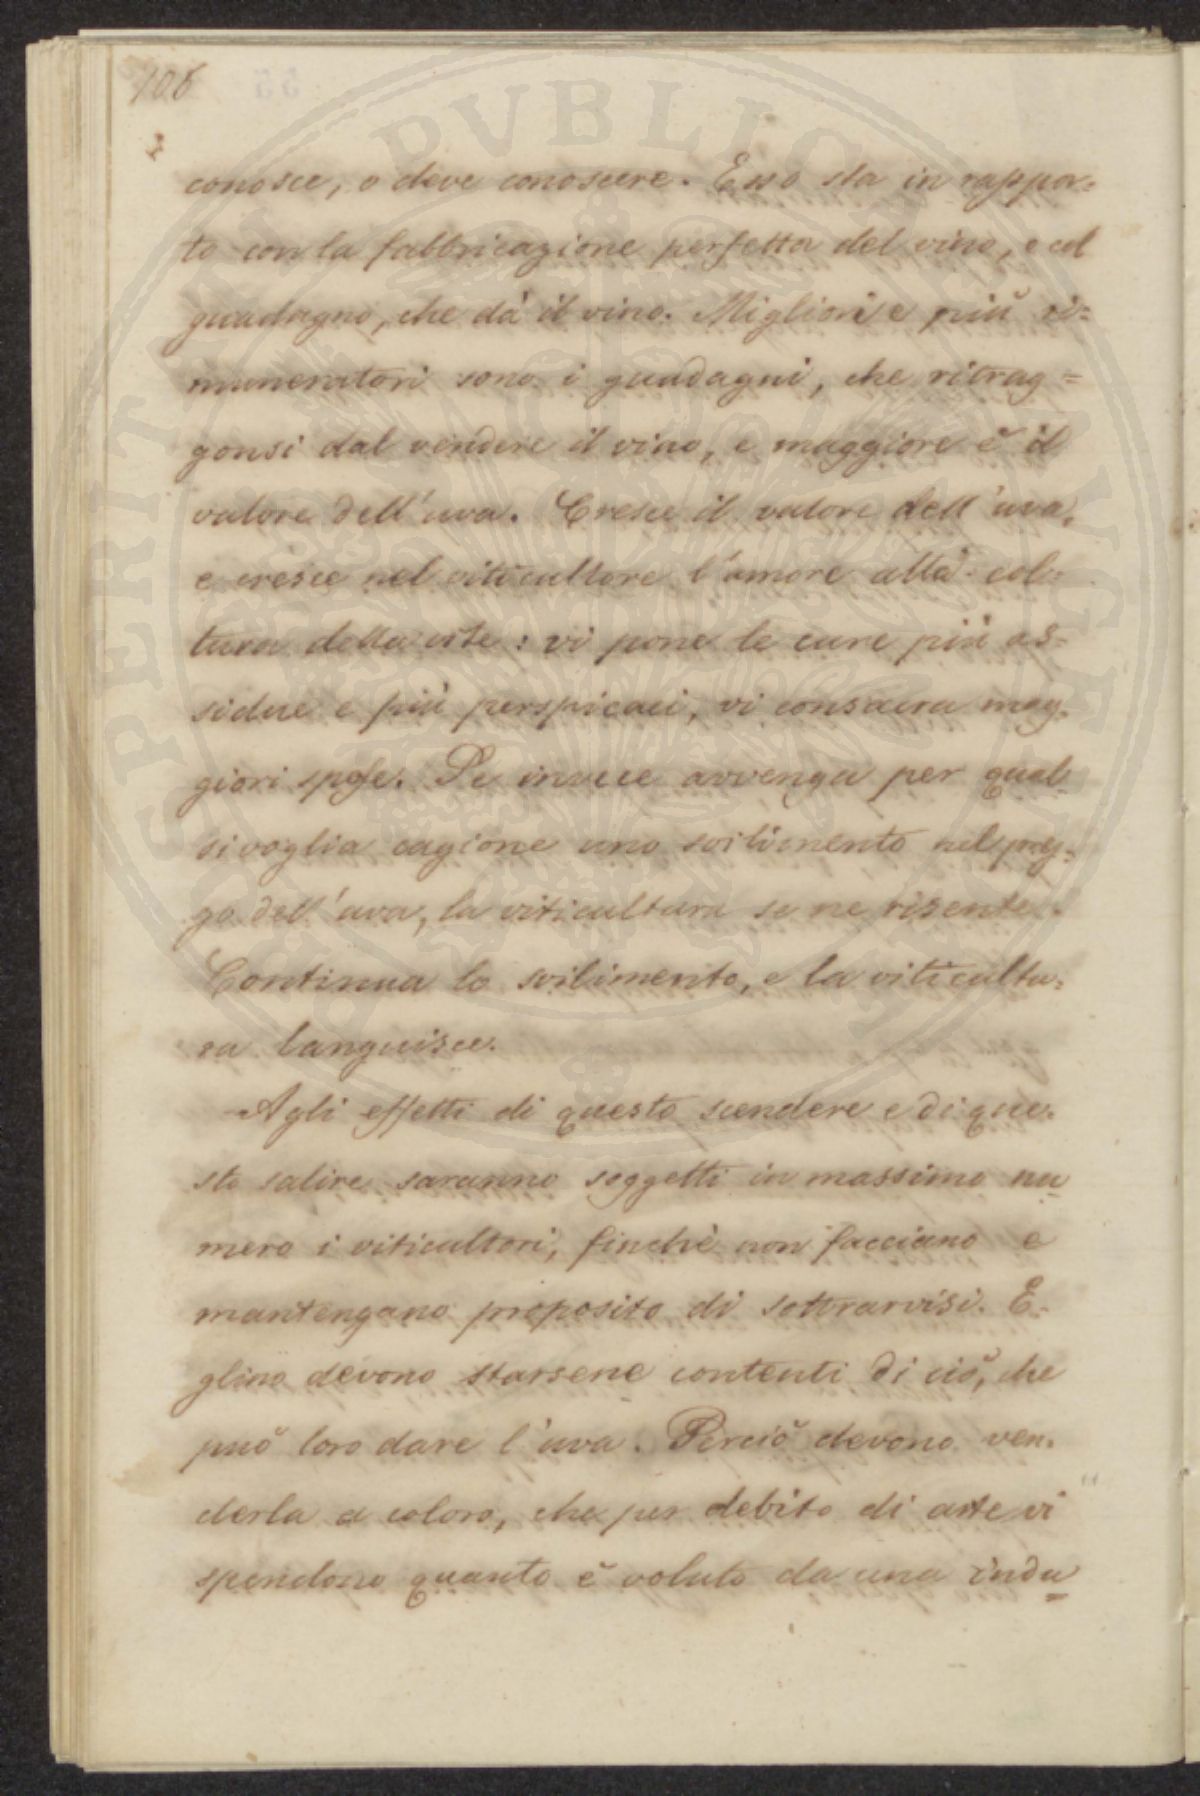 106
conosce, o deve conoscere. Esso sta in rappor=
to con la fabbricazione perfetta del vino, e col
guadagno, che dà il vino. Migliori e più ri=
muneratori sono i guadagni, che ritrag=
gonsi dal vendere il vino, e maggiore è il
valore dell'uva. Cresce il valore dell'uva,
e cresce nel viticultore l'amore alla col=
tura della vite: vi pone le cure più as-
sidue e più perspicaci, vi consacra mag-
giori spese. Se invece avvenga per qual
sivoglia cagione uno svilimento nel prez-
zo dell'uva, la viticultura se ne risente.
Continua lo svilimento, e la viticultu-
ra languisce.
Agli effetti di questo scendere e di que-
sto salire saranno soggetti in massimo nu
mero i viticultori, finchè non facciano e
mantengano proposito di sottrarvisi. E-
glino devono starsene contenti di ciò, che
può loro dare l'uva. Perciò devono ven-
derla a coloro, che per debito di arte vi
spendono quanto è voluto da una indu=
PVBLICA